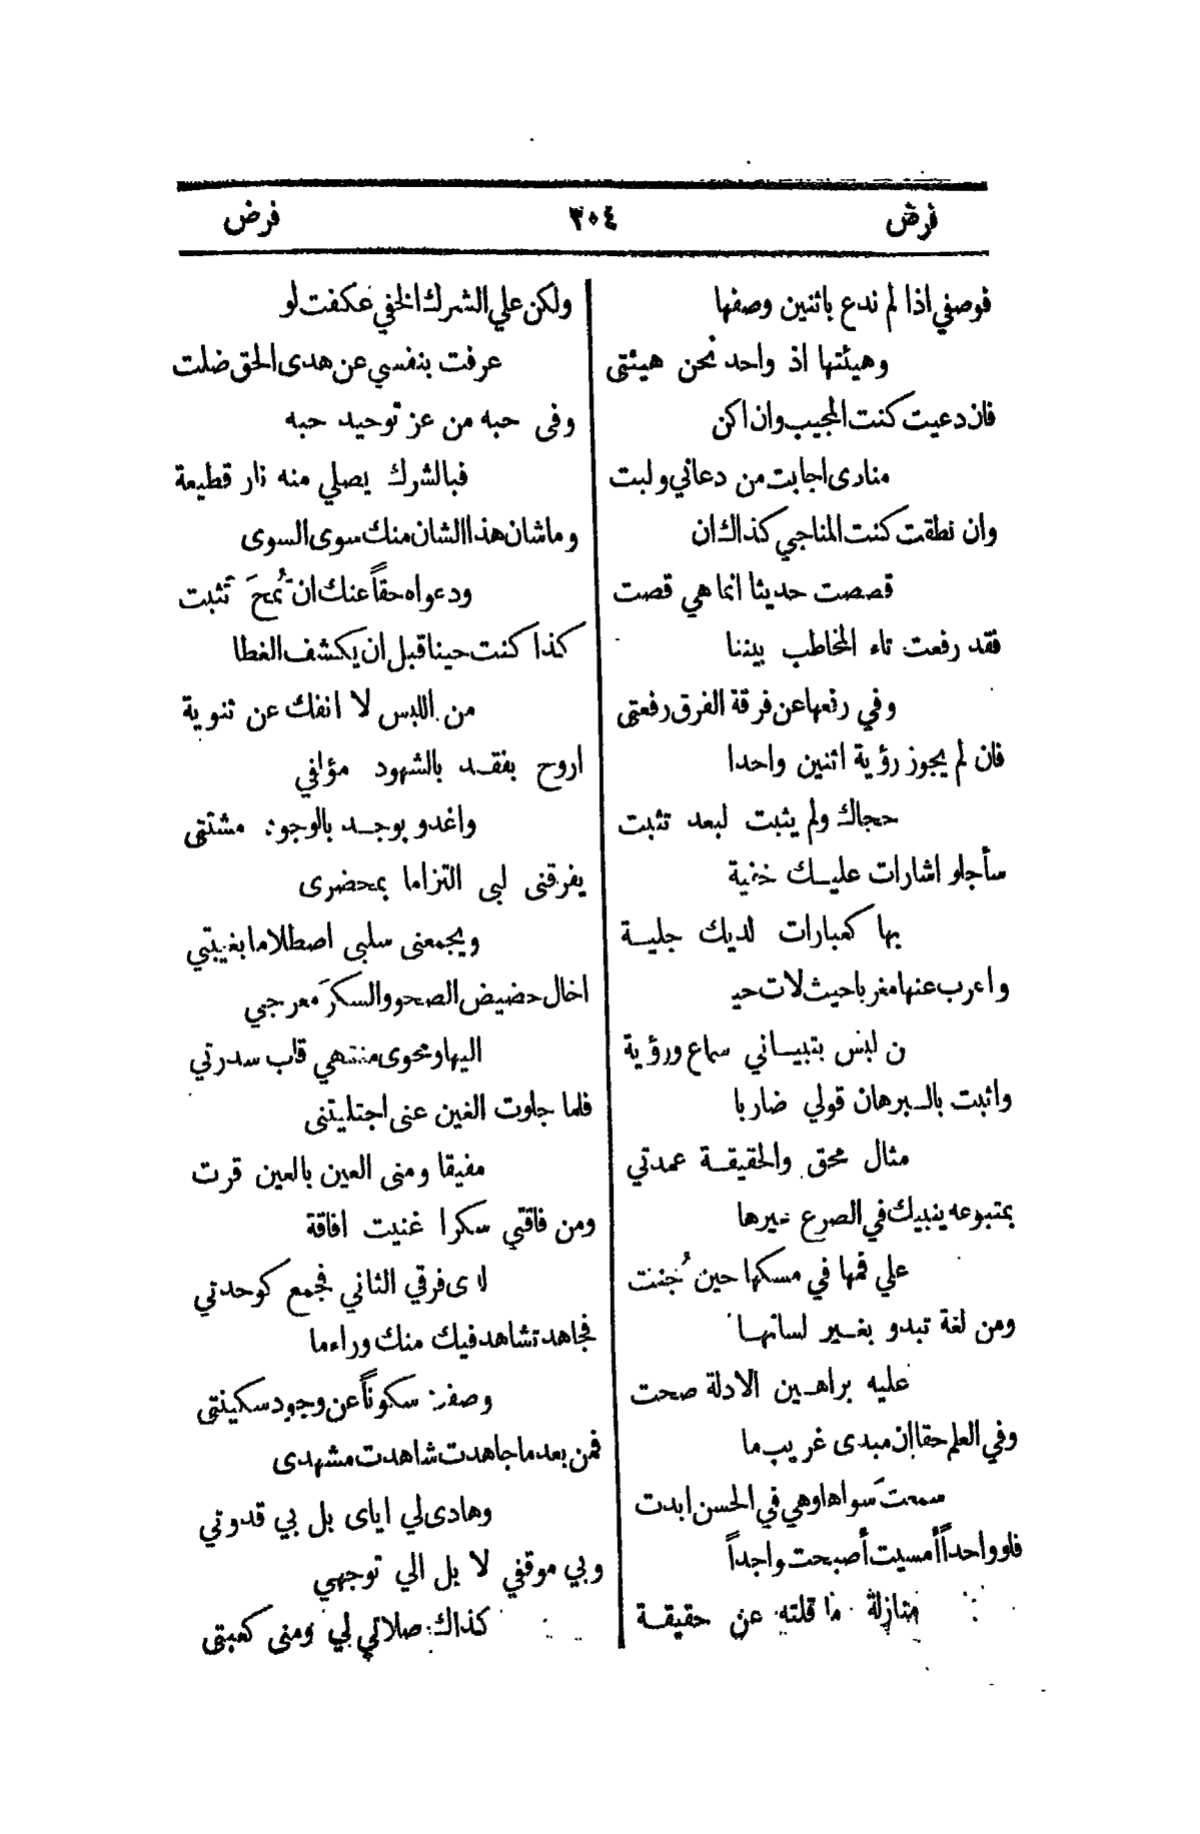 فرض ٣٠٤ فرض
فوصفي اذا لم ندع باثنين وصفها
وهيئتها اذ واحد نحن هيئتى
فان دعيت كنت المجيب وان اكن
منادى اجابت من دعاني ولبت
وان نطقت كنت المناجي كذاك ان
قصصت حديثا انما هي قصت
فقد رفعت تاء المخاطب بيننا
وفي رفعها عن فرقة الفرق رفعتى
فان لم يجوز رؤية اثنين واحدا
حجاك ولم يثبت لبعد تثبت
سأجلو اشارات عليك خفية
بها كعبارات لديك جلية
واعرب عنها مغربا حيث لات حيـ
ن لبس بتبياني سماع ورؤية
واثبت بالبرهان قولي ضاربا
مثال محق والحقيقة عمدتي
بمتبوعه ينبيك في الصرع غيرها
علي فمها في مسكها حين جُنت
ومن لغة تبدو بغير لسانها
عليه براهين الادلة صحت
وفي العلم حقا ان مبدى غريب ما
سمعتَ سواها وهي في الحسن ابدت
فلو واحداً أمسيت أصبحت واجداً
منازلة ما قلته عن حقيقة
ولكن علي الشرك الخفي عكفت لو
عرفت بنفسي عن هدى الحق ضلت
وفى حبه من عز توحيد حبه
فبالشرك يصلي منه نار قطيعة
وما شان هذا الشان منك سوى السوى
ودعواه حقاً عنك ان تُمحَ تثبت
كذا كنت حينا قبل ان يكشف الغطا
من اللبس لا انفك عن ثنوية
اروح بفقد بالشهود مؤلفي
واغدو بوجد بالوجود مشتتى
يفرقنى لبى التزاما بمحضرى
ويجمعنى سلبى اصطلاما بغيبتي
اخال حضيض الصحو والسكرَ معرجي
اليها ومحوى منتهي قاب سدرتي
فلما جلوت الغين عنى اجتليتنى
مفيقا ومنى العين بالعين قرت
ومن فاقتي سكرا غنيت افاقة
لدى فرقي الثاني فجمع كوحدتي
فجاهد تشاهد فيك منك وراءما
وصفت سكوناً عن وجود سكينتى
فمن بعد ما جاهدت شاهدت مشهدى
وهادى لي اياى بل بي قدوتي
وبي موقفي لا بل الي توجهي
كذاك صلاتي لي ومنى كعبتى